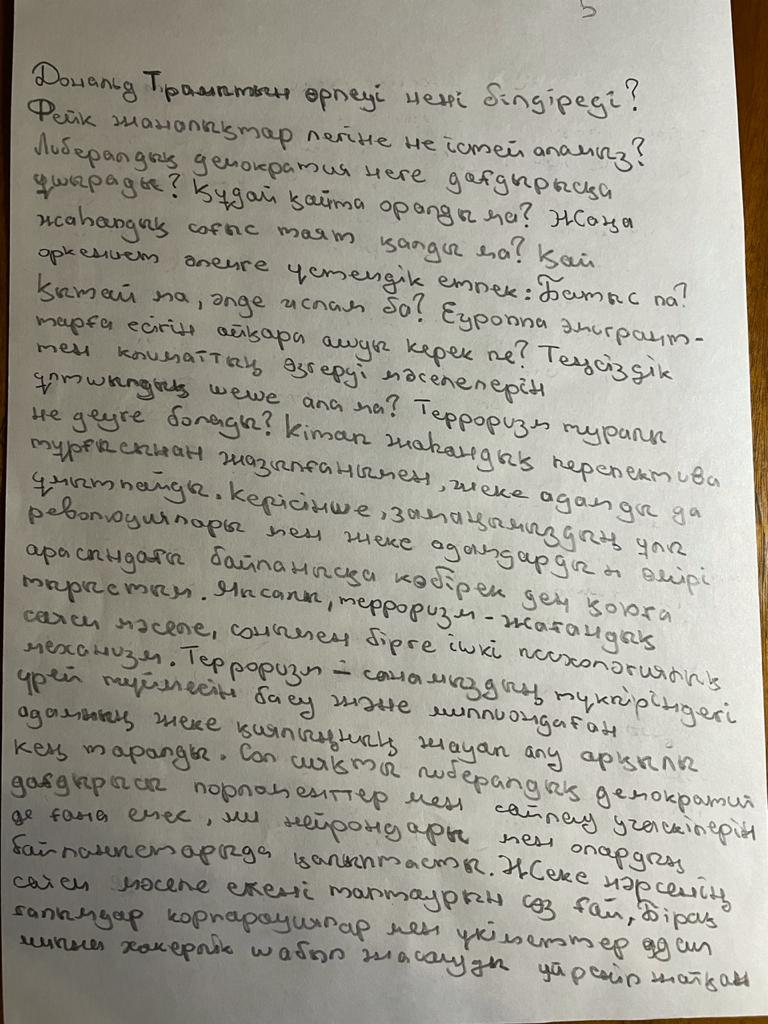 5
Дональд Трамптын өрлеуі нені білдіреді?
Фейк жаңалықтар легіне не істей аламыз?
Либералдық демократия неге дағдырысқа
ұшырады? Құдай қайта оралды ма? Жаңа
жаһандық соғыс таят қалды ма? Қай
өркениет әлемге үстемдік етпек: Батыс па?
Қытай ма, әлде ислам ба? Еуроппа эмигрант-
тарға есігін айқара ашуы керек пе? Теңсіздік
пен климаттың өзгеруі мәселелерін
ұлтшылдық шеше ала ма? Терроризм туралы
не деуге болады? Кітап жаһандық перспектива
тұрғысынан жазылғанымен, жеке адамды да
ұмытпайды. Керісінше, заманымыздың ұлы
революциялары мен жеке адамдардың өмірі
арасындағы байланысқа көбірек ден қоюға
тырыстым. Мысалы, терроризм - жағандық
саяси мәселе, сонымен бірге ішкі психологиялық
механизм. Терроризм - санамыздың түкпіріндегі
үрей түймесін басу және миллиондаған
адамның жеке қиялының жауап алу арқылы
кең таралды. Сол сияқты либералдық демократия
дағдырысы порломенттер мен сайлау учаскілерін
де ғана емес, ми нейрондары мен олардың
байланыстарыда қалыптасты. Жеке нәрсенің
саяси мәселе екені таптаурын сөз ғой, Бірақ
ғалымдар корпарациялар мен үкіметтер адам
миына хакерлік шабуыл жасауды үйреніп жатқан